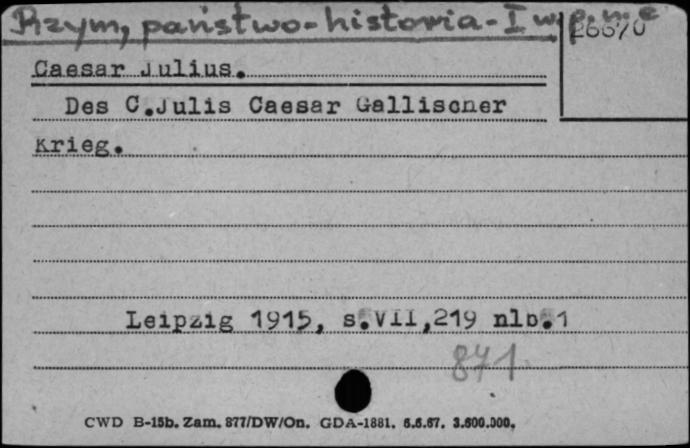 Rzym, państwo-historia-I w.p.n.e
26670
Caesar Julius.
Des C.Julis Caesar Gallischer
Krieg.
Leipzig 1915, s.VII,219 nlb.1
871.
CWD B-15b. Zam. 877/DW/On. GDA-1881. 6.6.67. 3.600.000.